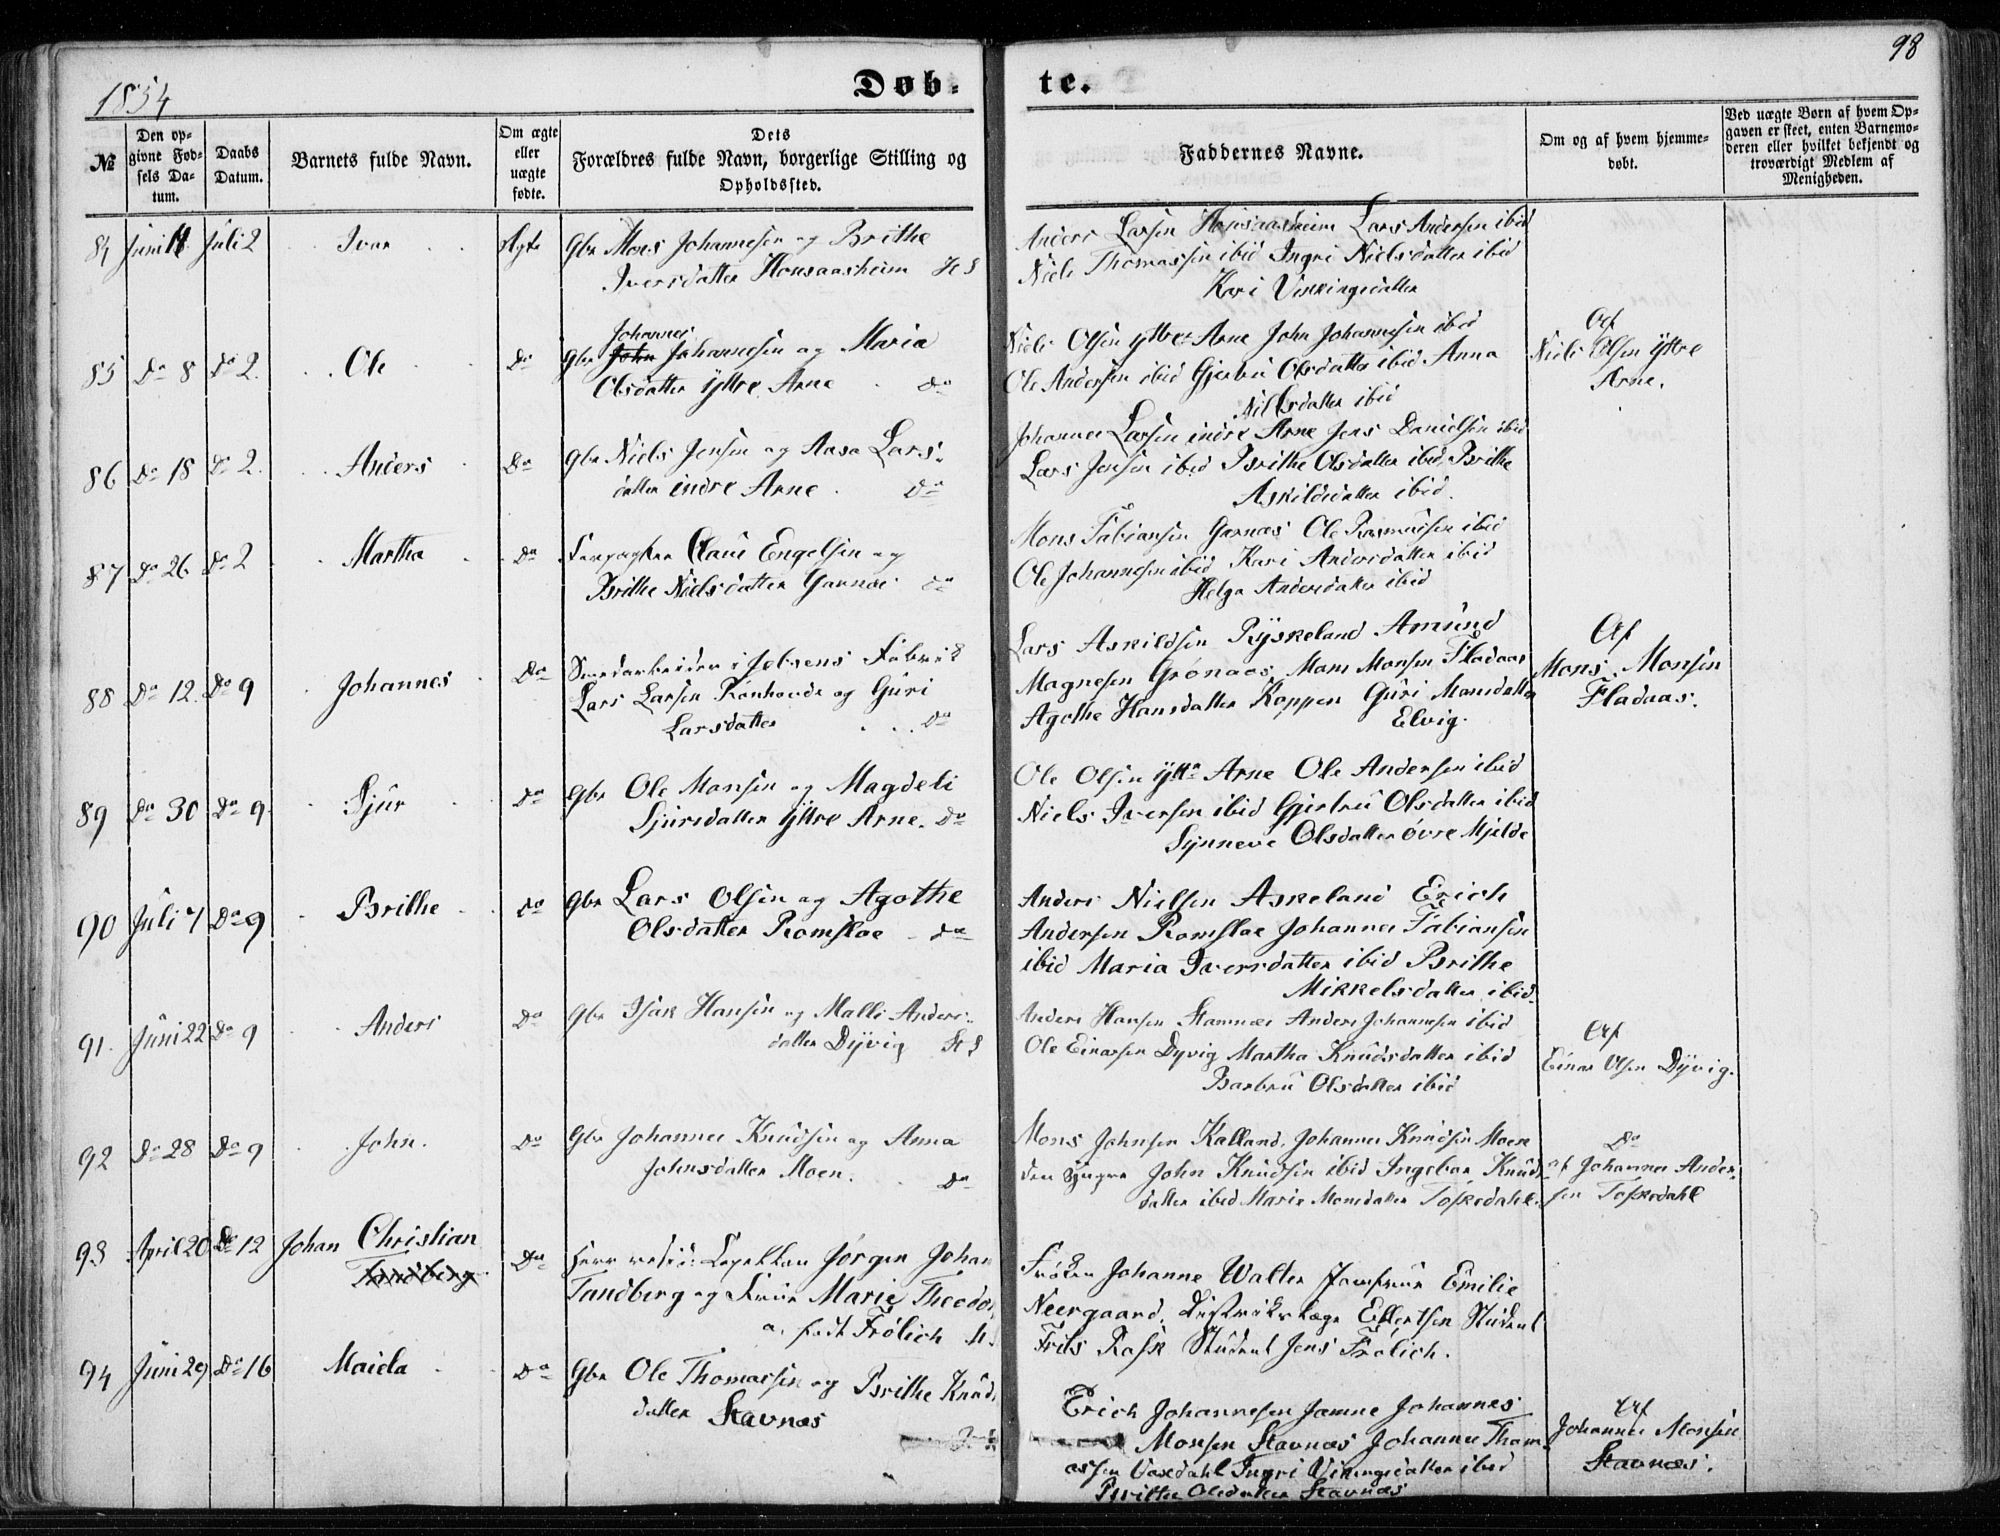 98
1854
Døb- te.
№
Den opgivne Fødsels Datum.
Daabs Datum.
Barnets fulde Navn.
Om ægte eller uægte fødte.
Dets Forældres fulde Navn, borgerlige Stilling og Opholdssted.
Faddernes Navne.
Om og af hvem hjemmedøbt.
Ved uægte Børn af hvem Opgaven er skeet, enten Barnemoderen eller hvilket bekjendt og troværdigt Medlem af Menigheden.
84 Juni 11 Juli 2 Ivar Ægte
Gbr Mons Johannesen og Brithe
Iversdatter Honsaasheim
Anders Larsen Honsaasheim Lars Andersen ibid
Niels Thomassen ibid Ingri Nielsdatter ibid
Kari Vikingsdatter
85 Do 8 Do 2 Ole Do
Johannes
Gbr John Johannesen og Maria
Olsdatter Yttre Arne Do
Niels Olsen Yttre Arne John Johannesen ibid
Ole Andersen ibid Gjertru Olsdatter ibid Anna
Nilsdatter ibid
Af
Niels Olsen Yttre
Arne.
86 Do 18 Do 2 Anders Do
Gbr Niels Jensen og Aasa Lars-
datter indre Arne Do
Johannes Larsen indre Arne Jens Danielsen ibid
Lars Jensen ibid Brithe Olsdatter ibid Brithe
Askildsdatter ibid.
87 Do 26 Do 2 Martha Do
Claus Engelsen og
Brithe Nielsdatter Garnæs Do
Mons Fabiansen Garnæs Ole Rasmussen ibid
Ole Johannesen ibid Kari Andersdatter ibid
Helga Andersdatter ibid
88 Do 12 Do 9 Johannes Do
i Jebsens Fabrik
Lars Larsen Rønhovde og Guri
Larsdatter Do
Lars Askildsen Ryskeland Amund
Magnesen Grønaas Mons Monsen Fladaas
Agothe Hansdatter Koppen Guri Monsdatter
Elvig.
Af
Mons Monsen
Fladaas.
89 Do 30 Do 9 Sjur Do
Gbr Ole Monsen og Magdeli
Sjursdatter Yttre Arne. Do
Ole Olsen Yttre Arne Ole Andersen ibid
Niels Iversen ibid Gjertru Olsdatter ibid
Synneve Olsdatter øvre Mjelde
90 Juli 7 Do 9 Brithe Do
Gbr Lars Olsen og Agothe
Olsdatter Romsloe Do
Anders Nielsen Askeland Erich
Andersen Romsloe Johannes Fabiansen
ibid Maria Iversdatter ibid Brithe
Mikkelsdatter ibid
91. Juni 22 Do 9 Anders Do
Gbr Isak Hansen og Malli Anders-
datter Dyvig
Anders Hansen Stamnæs Anders Johannesen ibid
Ole Einarsen Dyvig Martha Knudsdatter ibid
Barbru Olsdatter ibid
Af
Einar Olsen Dyvig.
92 Do 28 Do 9 John. Do
Gbr Johannes Knudsen og Anna
Johnsdatter Moen. Do
Mons Johnsen Kalland, Johannes Knudsen Moen
den yngre John Knudsen ibid Ingebor Knuds-
datter ibid Marie Monsdatter Toskedahl.
Do
af Johannes Ander-
sen Toskedahl
93 April 20 Do 12 Johan Christian Do
Tandberg
Herr resid: Capellan Jørgen Johan
Tandberg og Frue Marie Theodor
a, født Frølich
Frøken Johanne Walter Jomfrue Emilie
Neergaard, Districtslæge Ellertsen Student
Frits Rask Student Jens Frølich.
94 Juni 29 Do 16 Maida Do
Gbr Ole Thomassen og Brithe Knuds
datter Stavnæs
Erich Johannesen Jamne Johannes
Monsen Stavnæs Johannes Thom-
assen Vaxdahl Ingri Vikingsdatter ibid
Brithe Olsdatter Stavnæs
Af
Johannes Monsen
Stavnæs.